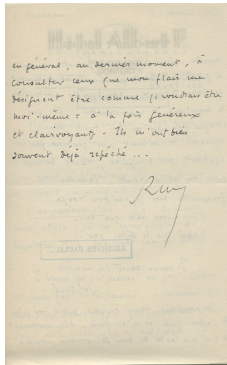 en général, au dernier moment, à
consulter ceux que mon flair me
désignent être comme je voudrais être
moi-même = à la fois généreux
et clairvoyants. Ils m'ont bien
souvent déjà repêché ...